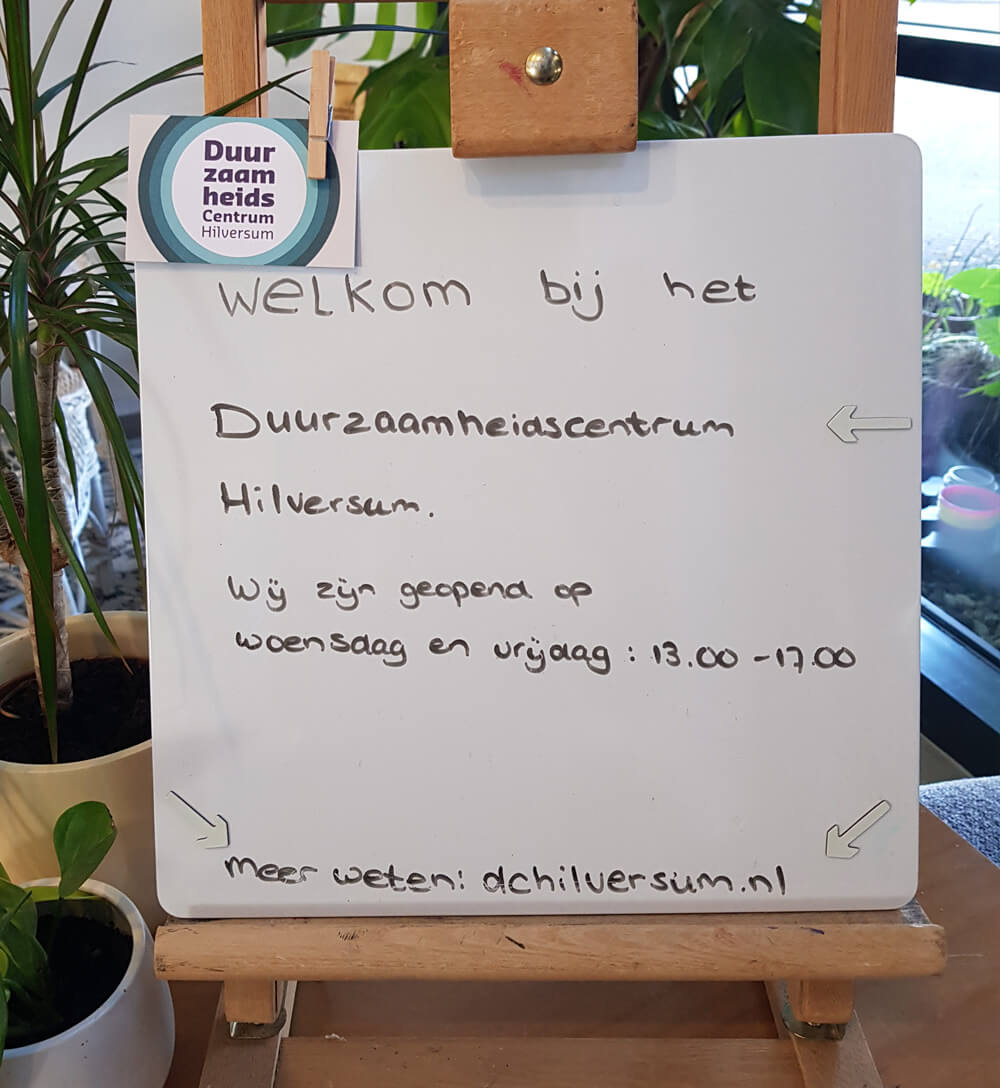 Duur
zaam
heids
Centrum
Hilversum
WELKOM bij het
Duurzaamheidscentrum
Hilversum.
Wij zijn geopend op
woensdag en vrijdag : 13.00 - 17.00
meer weten: dchilversum.nl